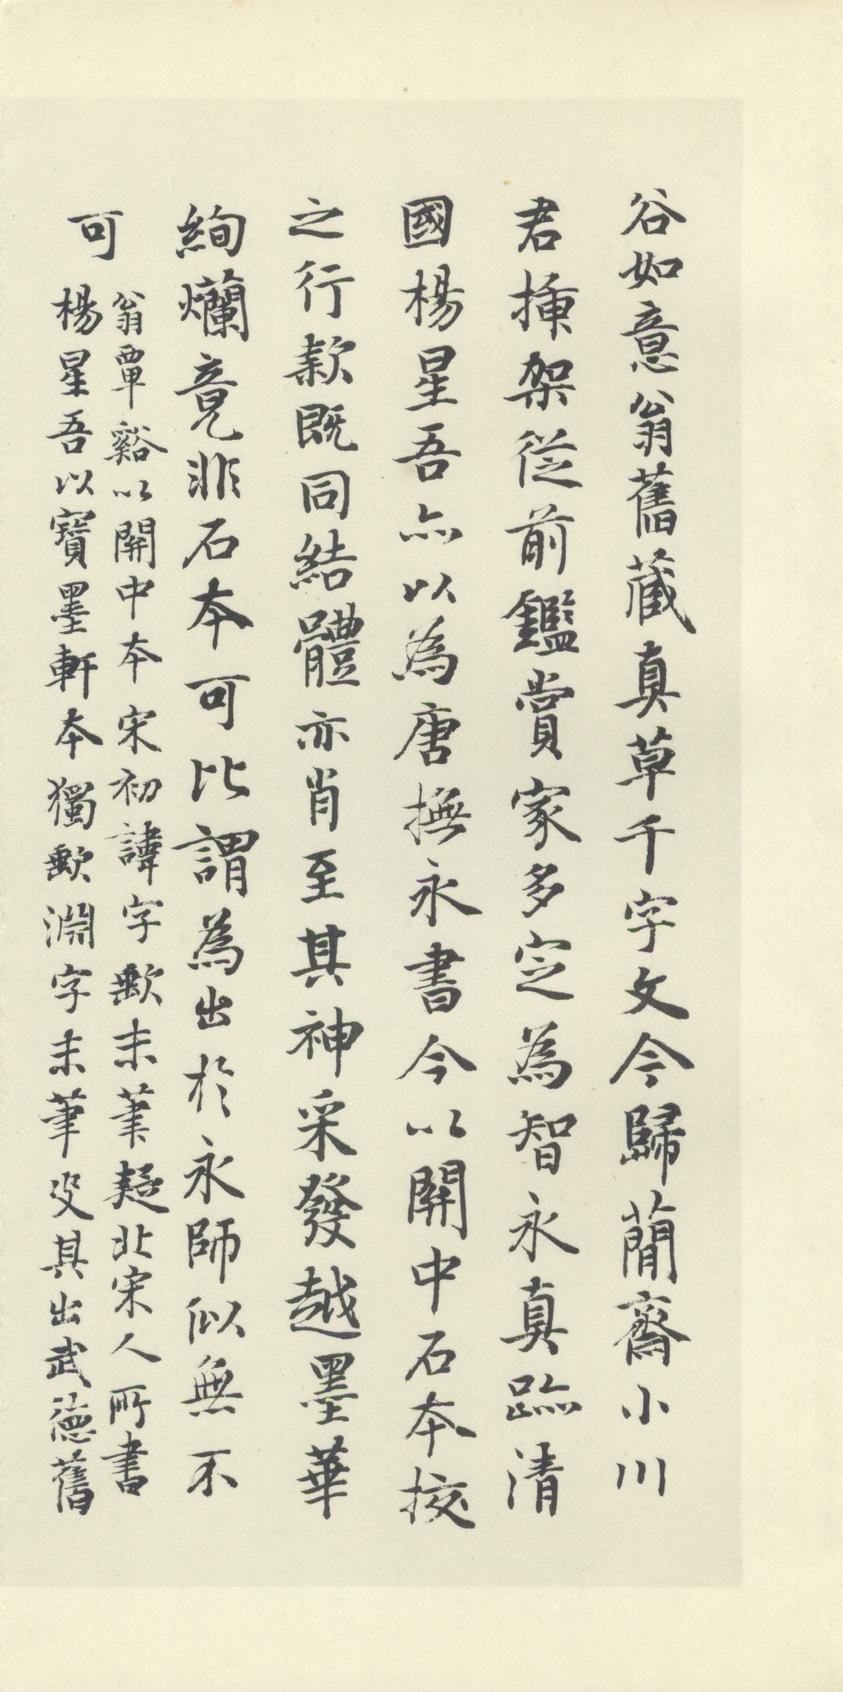 谷如意翁舊藏真草千字文今歸蕳齋小川
君揷架從前鑑賞家多定為智永真跡清
國楊星吾亦以為唐撫永書今以關中石本挍
之行款既同結體亦肖至其神采發越墨華
絢爛竟非石本可比謂為出於永師似無不
可
翁覃谿以關中本宋初諱字歝末筆疑北宋人所書
楊星吾以寶墨軒本獨歝淵字末筆定其出武德舊